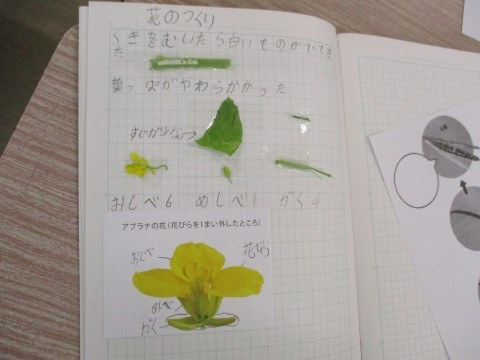 花のつくり
くきをむいたら白いものがでてき
た
葉っぱがやわらかかった
おしべ6 めしべ1 がく4
アブラナの花(花びらを1まい外したところ)
おしべ
花びら
めしべ
がく